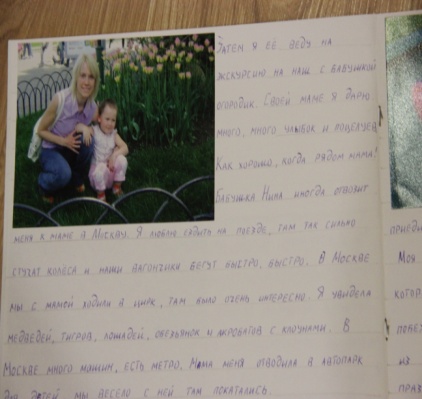 Затем я её веду на
экскурсию на наш с бабушкой
огородик. Своей маме я дарю
много, много улыбок и поцелуев.
Как хорошо, когда рядом мама!
Бабушка Нина иногда отвозит
меня к маме в Москву. Я люблю ездить на поезде, там так сильно
стучат колёса и наши вагончики бегут быстро, быстро. В Москве
мы с мамой ходили в цирк, там было очень интересно. Я увидела
медведей, тигров, лошадей, обезьянок и акробатов с клоунами. В
Москве много машин, есть метро. Мама меня отводила в автопарк
для детей мы весело с ней там покатались.
приеди
Моя
котор
повез
из
праз